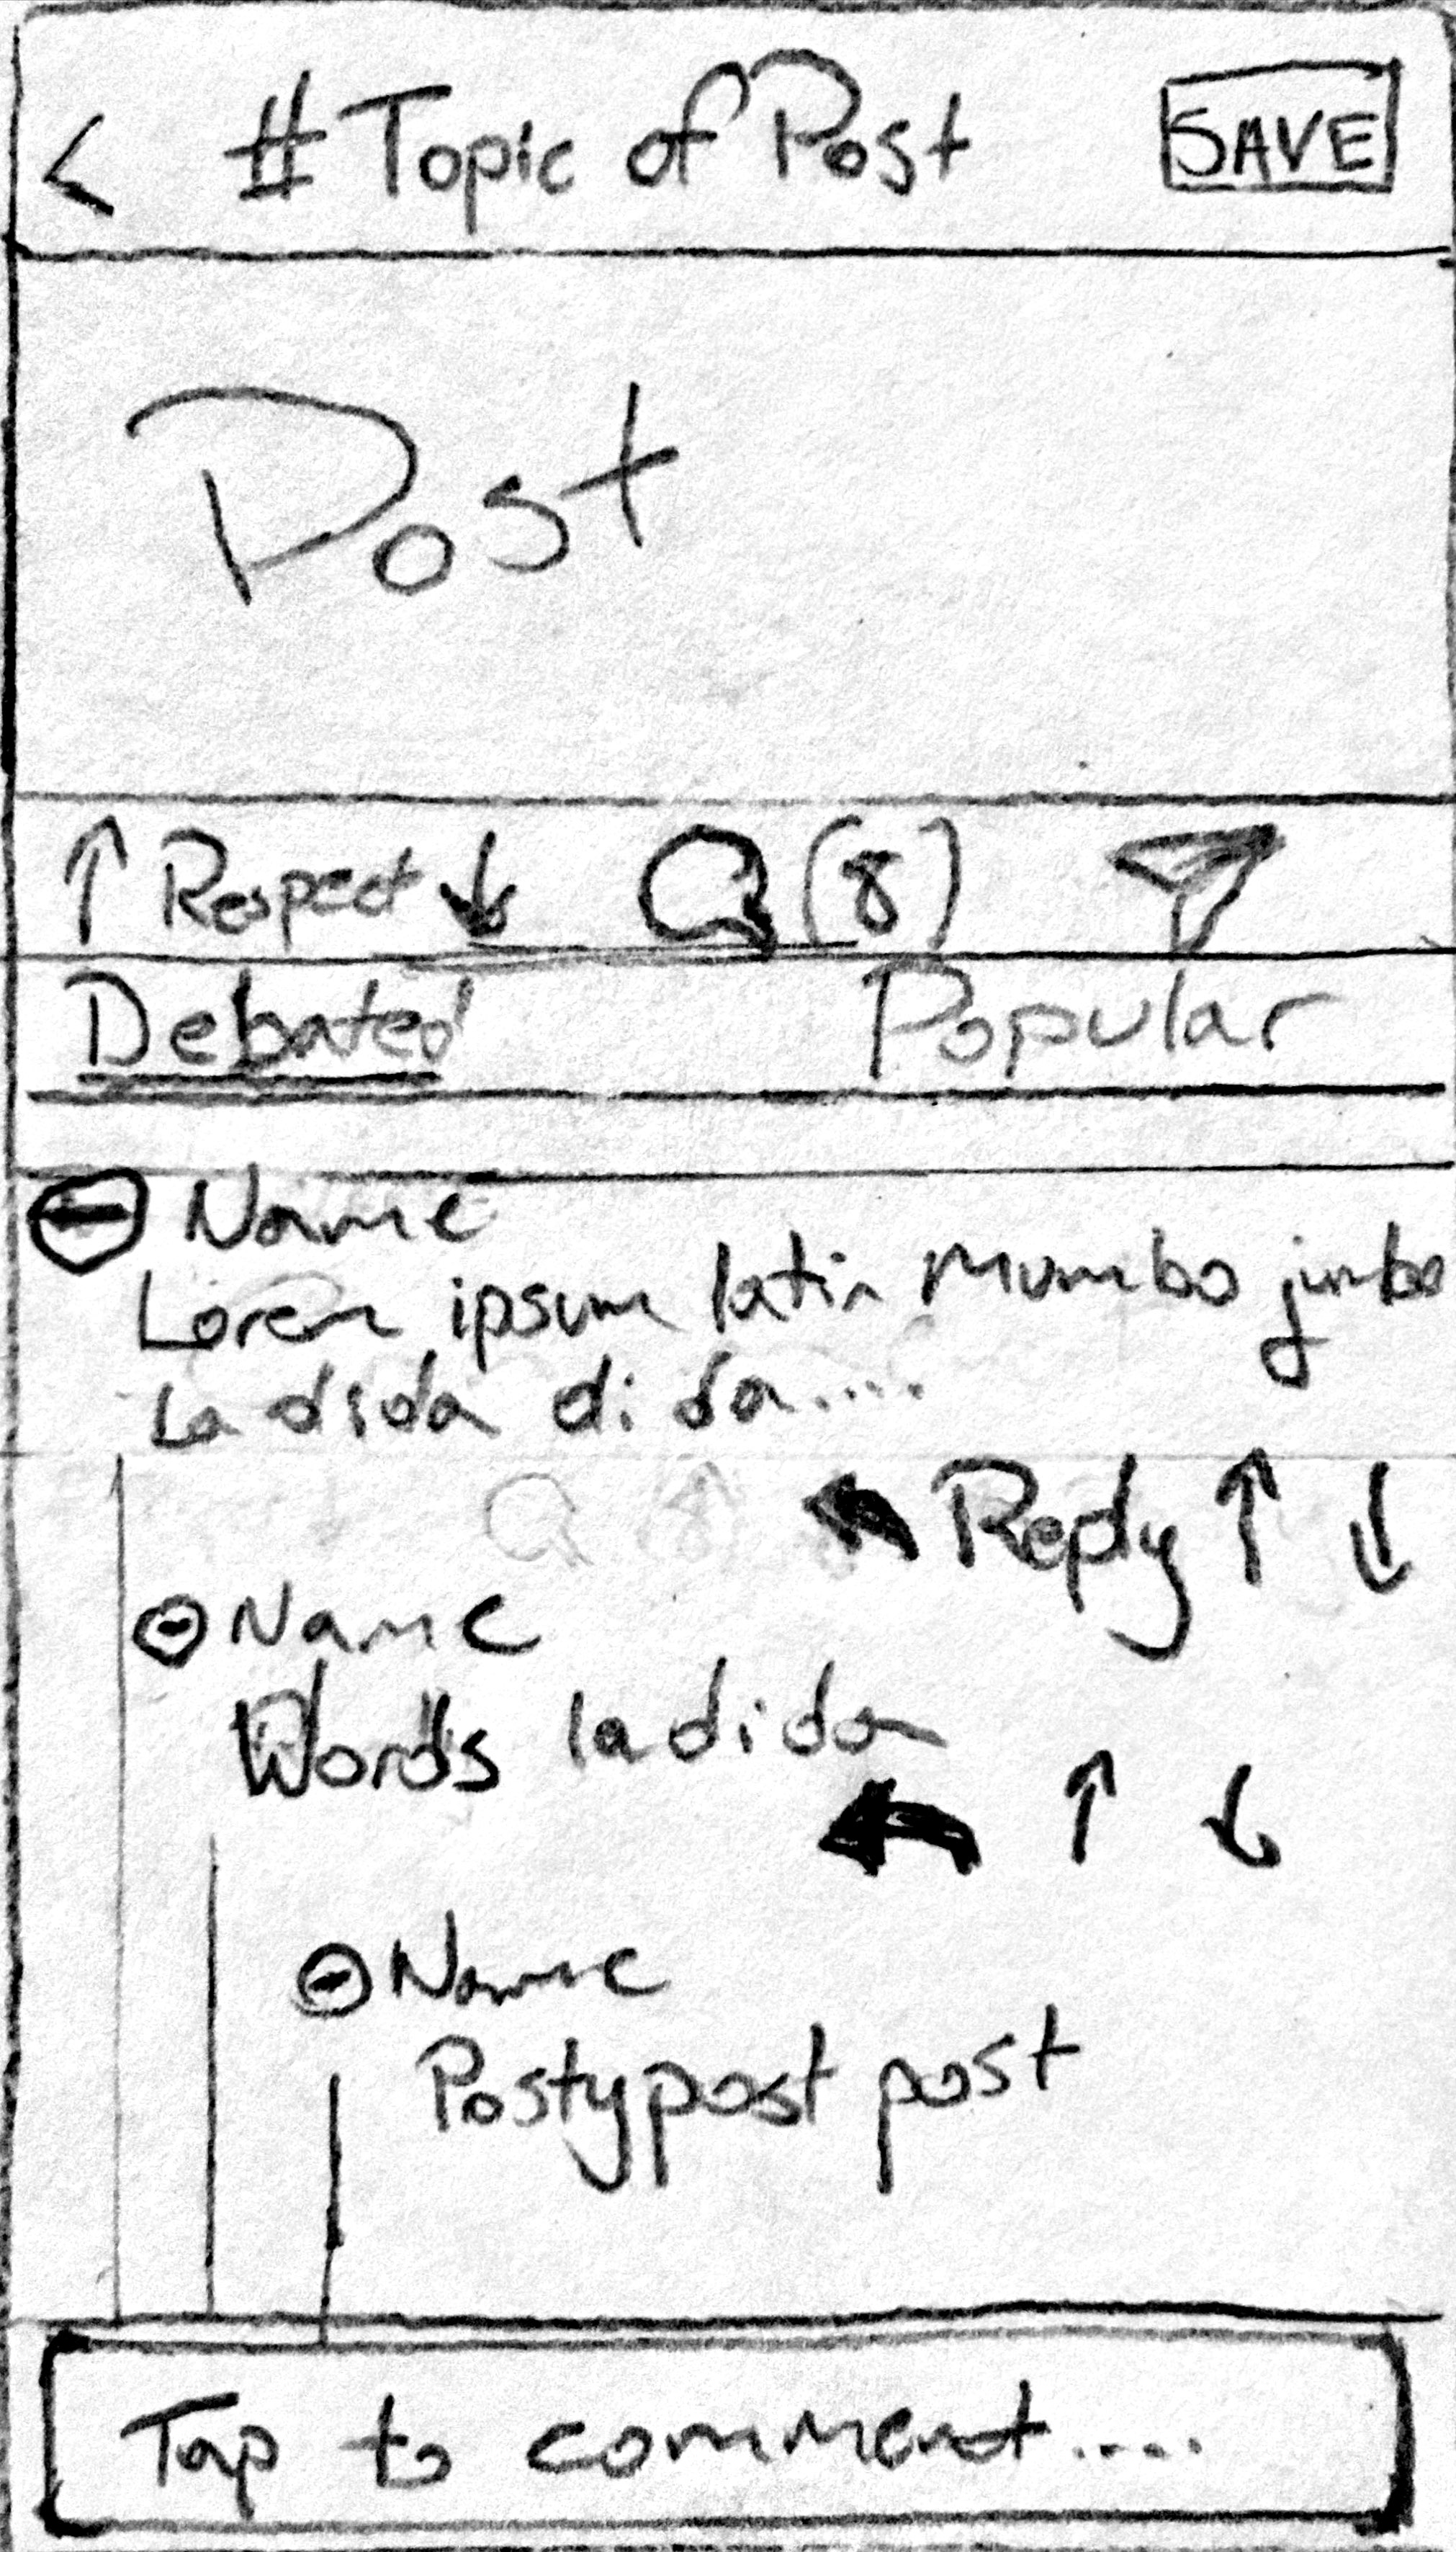 < # Topic of Post SAVE
Post
↑ Respect ↓ (8)
Debated Popular
Name
Lorem ipsum latin mumbo jumbo
la dida di da....
Reply ↑ ↓
Name
Words la di da
↑ ↓
Name
Posty post post
Tap to comment....